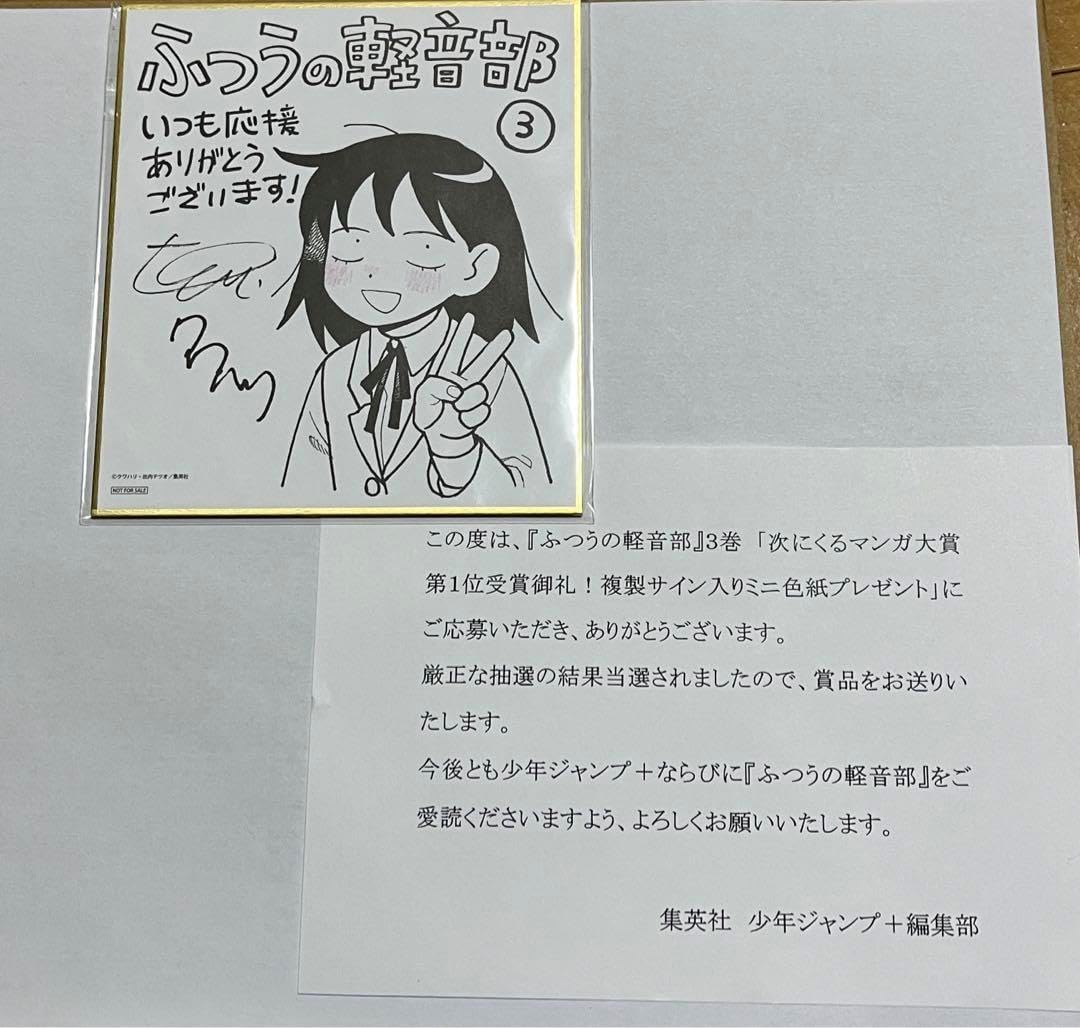 ふつうの軽音部
③
いつも応援
ありがとう
ございます!
©クワハリ・出内テツオ/集英社
NOT FOR SALE
この度は、『ふつうの軽音部』3巻 「次にくるマンガ大賞
第1位受賞御礼！複製サイン入りミニ色紙プレゼント」に
ご応募いただき、ありがとうございます。
厳正な抽選の結果当選されましたので、賞品をお送りい
たします。
今後とも少年ジャンプ＋ならびに『ふつうの軽音部』をご
愛読くださいますよう、よろしくお願いいたします。
集英社 少年ジャンプ＋編集部